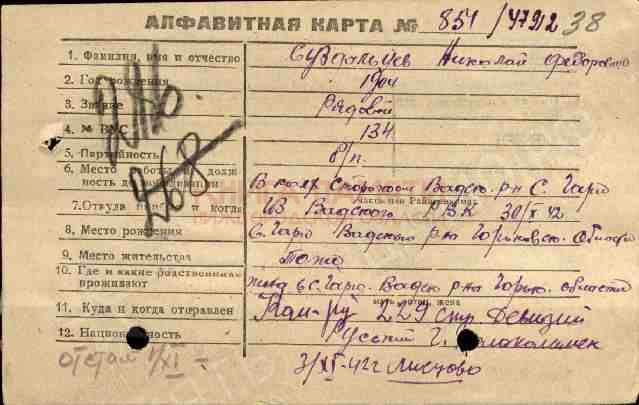 АЛФАВИТНАЯ КАРТА № 851/47912 38
1. Фамилия, имя и отчество Суздальцев Николай Федорович
2. Год рождения 1904
3. Звание Рядовой
4. № ВУС 134
5. Партийность б/п.
6. Место работы и должность до мобилизации В колх. Сторожем Вадск. р-н С.
7. Откуда и когда Из Вадского РВК 30/X 42
8. Место рождения Вадского р-на Горьковск. области
9. Место жительства Тоже
10. Где и какие родственники проживают жена в с. Вадск р-на Горьк. области
мать, отец, жена
11. Куда и когда отправлен 229 стр. Дивизии
12. Национальность Русский
отстал 1/XI
3/XI-42г
268